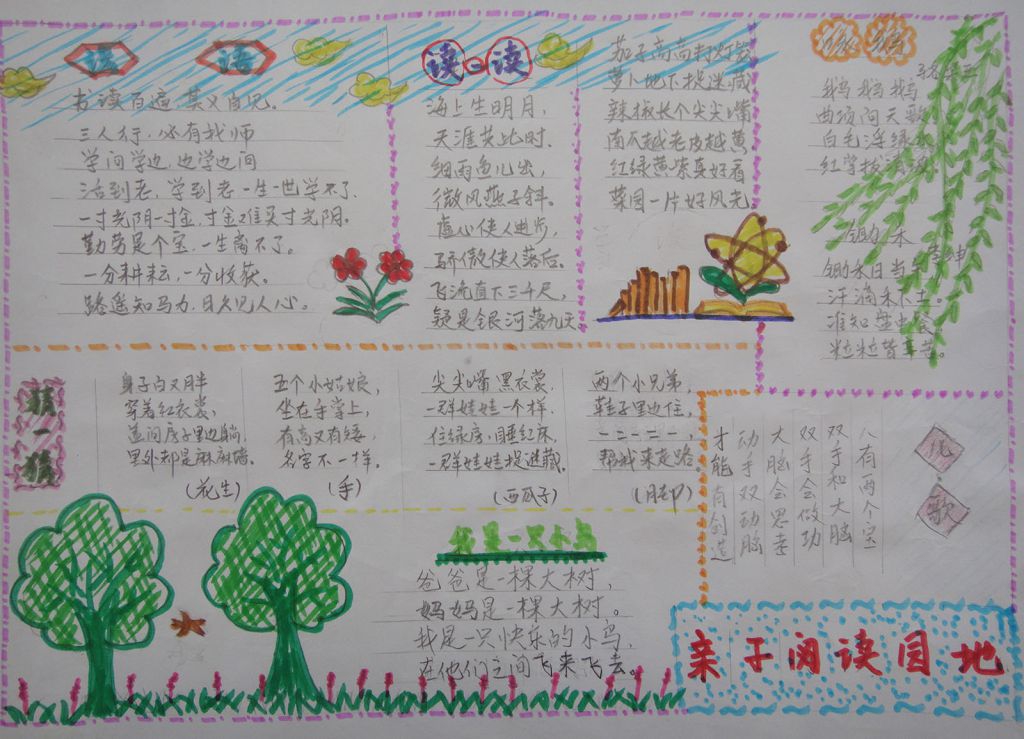 谚语
书读百遍,其义自见。
三人行,必有我师
学问学边,边学边问
活到老,学到老一生一世学不了.
一寸光阴一寸金,寸金难买寸光阴。
勤劳是个宝,一生离不了。
一分耕耘,一分收获。
路遥知马力,日久见人心。
读一读
海上生明月,
天涯共此时.
细雨鱼儿出,
微风燕子斜。
虚心使人进步,
骄傲使人落后。
飞流直下三千尺,
疑是银河落九天.
茄子高高打灯笼
萝卜地下捉迷藏
辣椒长个尖尖嘴
南瓜越老皮越黄
红绿黄紫真好看
菜园一片好风光
骆宾王
鹅 鹅 鹅
曲项向天歌
白毛浮绿水
红掌拨清波
锄禾
李绅
锄禾日当午
汗滴禾下土。
谁知盘中餐
粒粒皆辛苦。
猜一猜
身子白又胖
穿着红衣裳,
盖间房子里边躺.
里外都是麻麻墙.
(花生)
五个小姑娘,
坐在手掌上,
有高又有矮,
名字不一样。
(手)
尖尖嘴 黑衣裳.
一群娃娃一个样.
住绿房,睡红床,
一群娃娃捉迷藏.
(西瓜子)
两个小兄弟,
鞋子里边住,
一二一二一,
帮我来走路.
(脚)
我是一只小鸟
爸爸是一棵大树,
妈妈是一棵大树。
我是一只快乐的小鸟,
在他们之间飞来飞去。
儿歌
人有两个宝
双手和大脑
双手会做功
大脑会思考
动手双动脑
才能有创造
亲子阅读园地